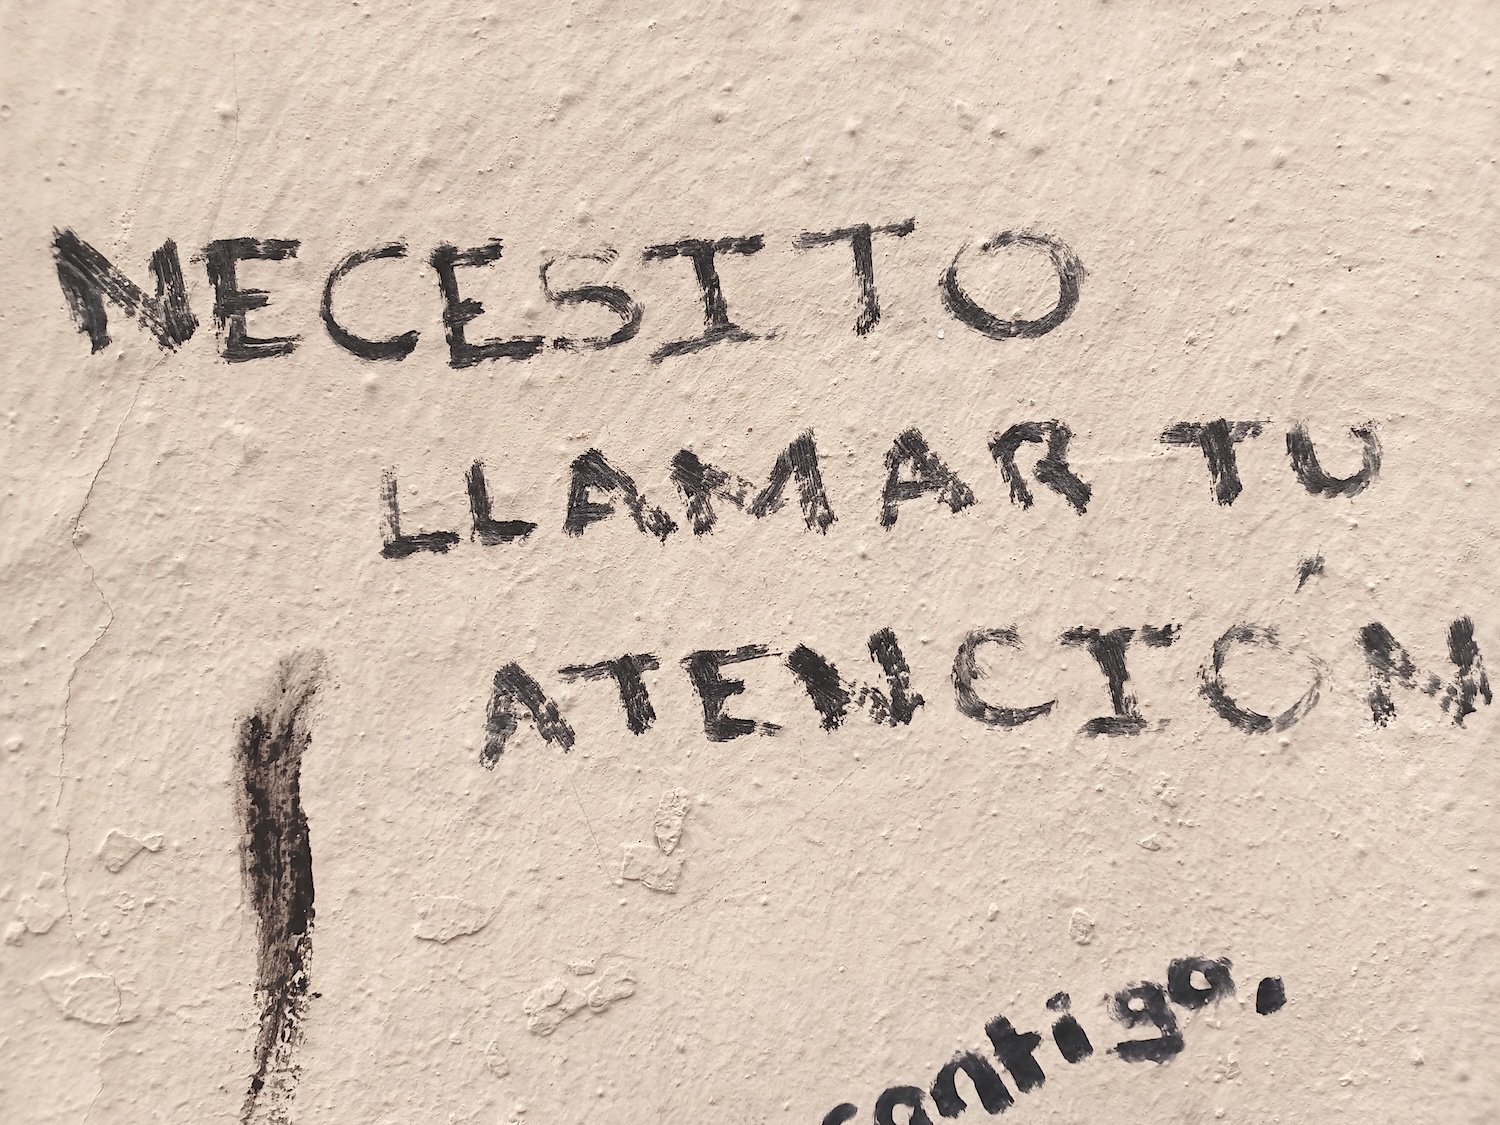 NECESITO
LLAMAR TU
ATENCIÓN
contigo.